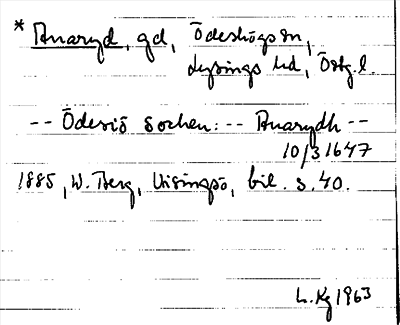 * Anaryd, gd, Ödeshögs sn,
Lysings hd, Östg.l.
-- Ödesiö Sochen: -- Anarydh --
10/3 1647
1885, W. Berg, Visingsö, bil. s. 40.
L. Kg 1963